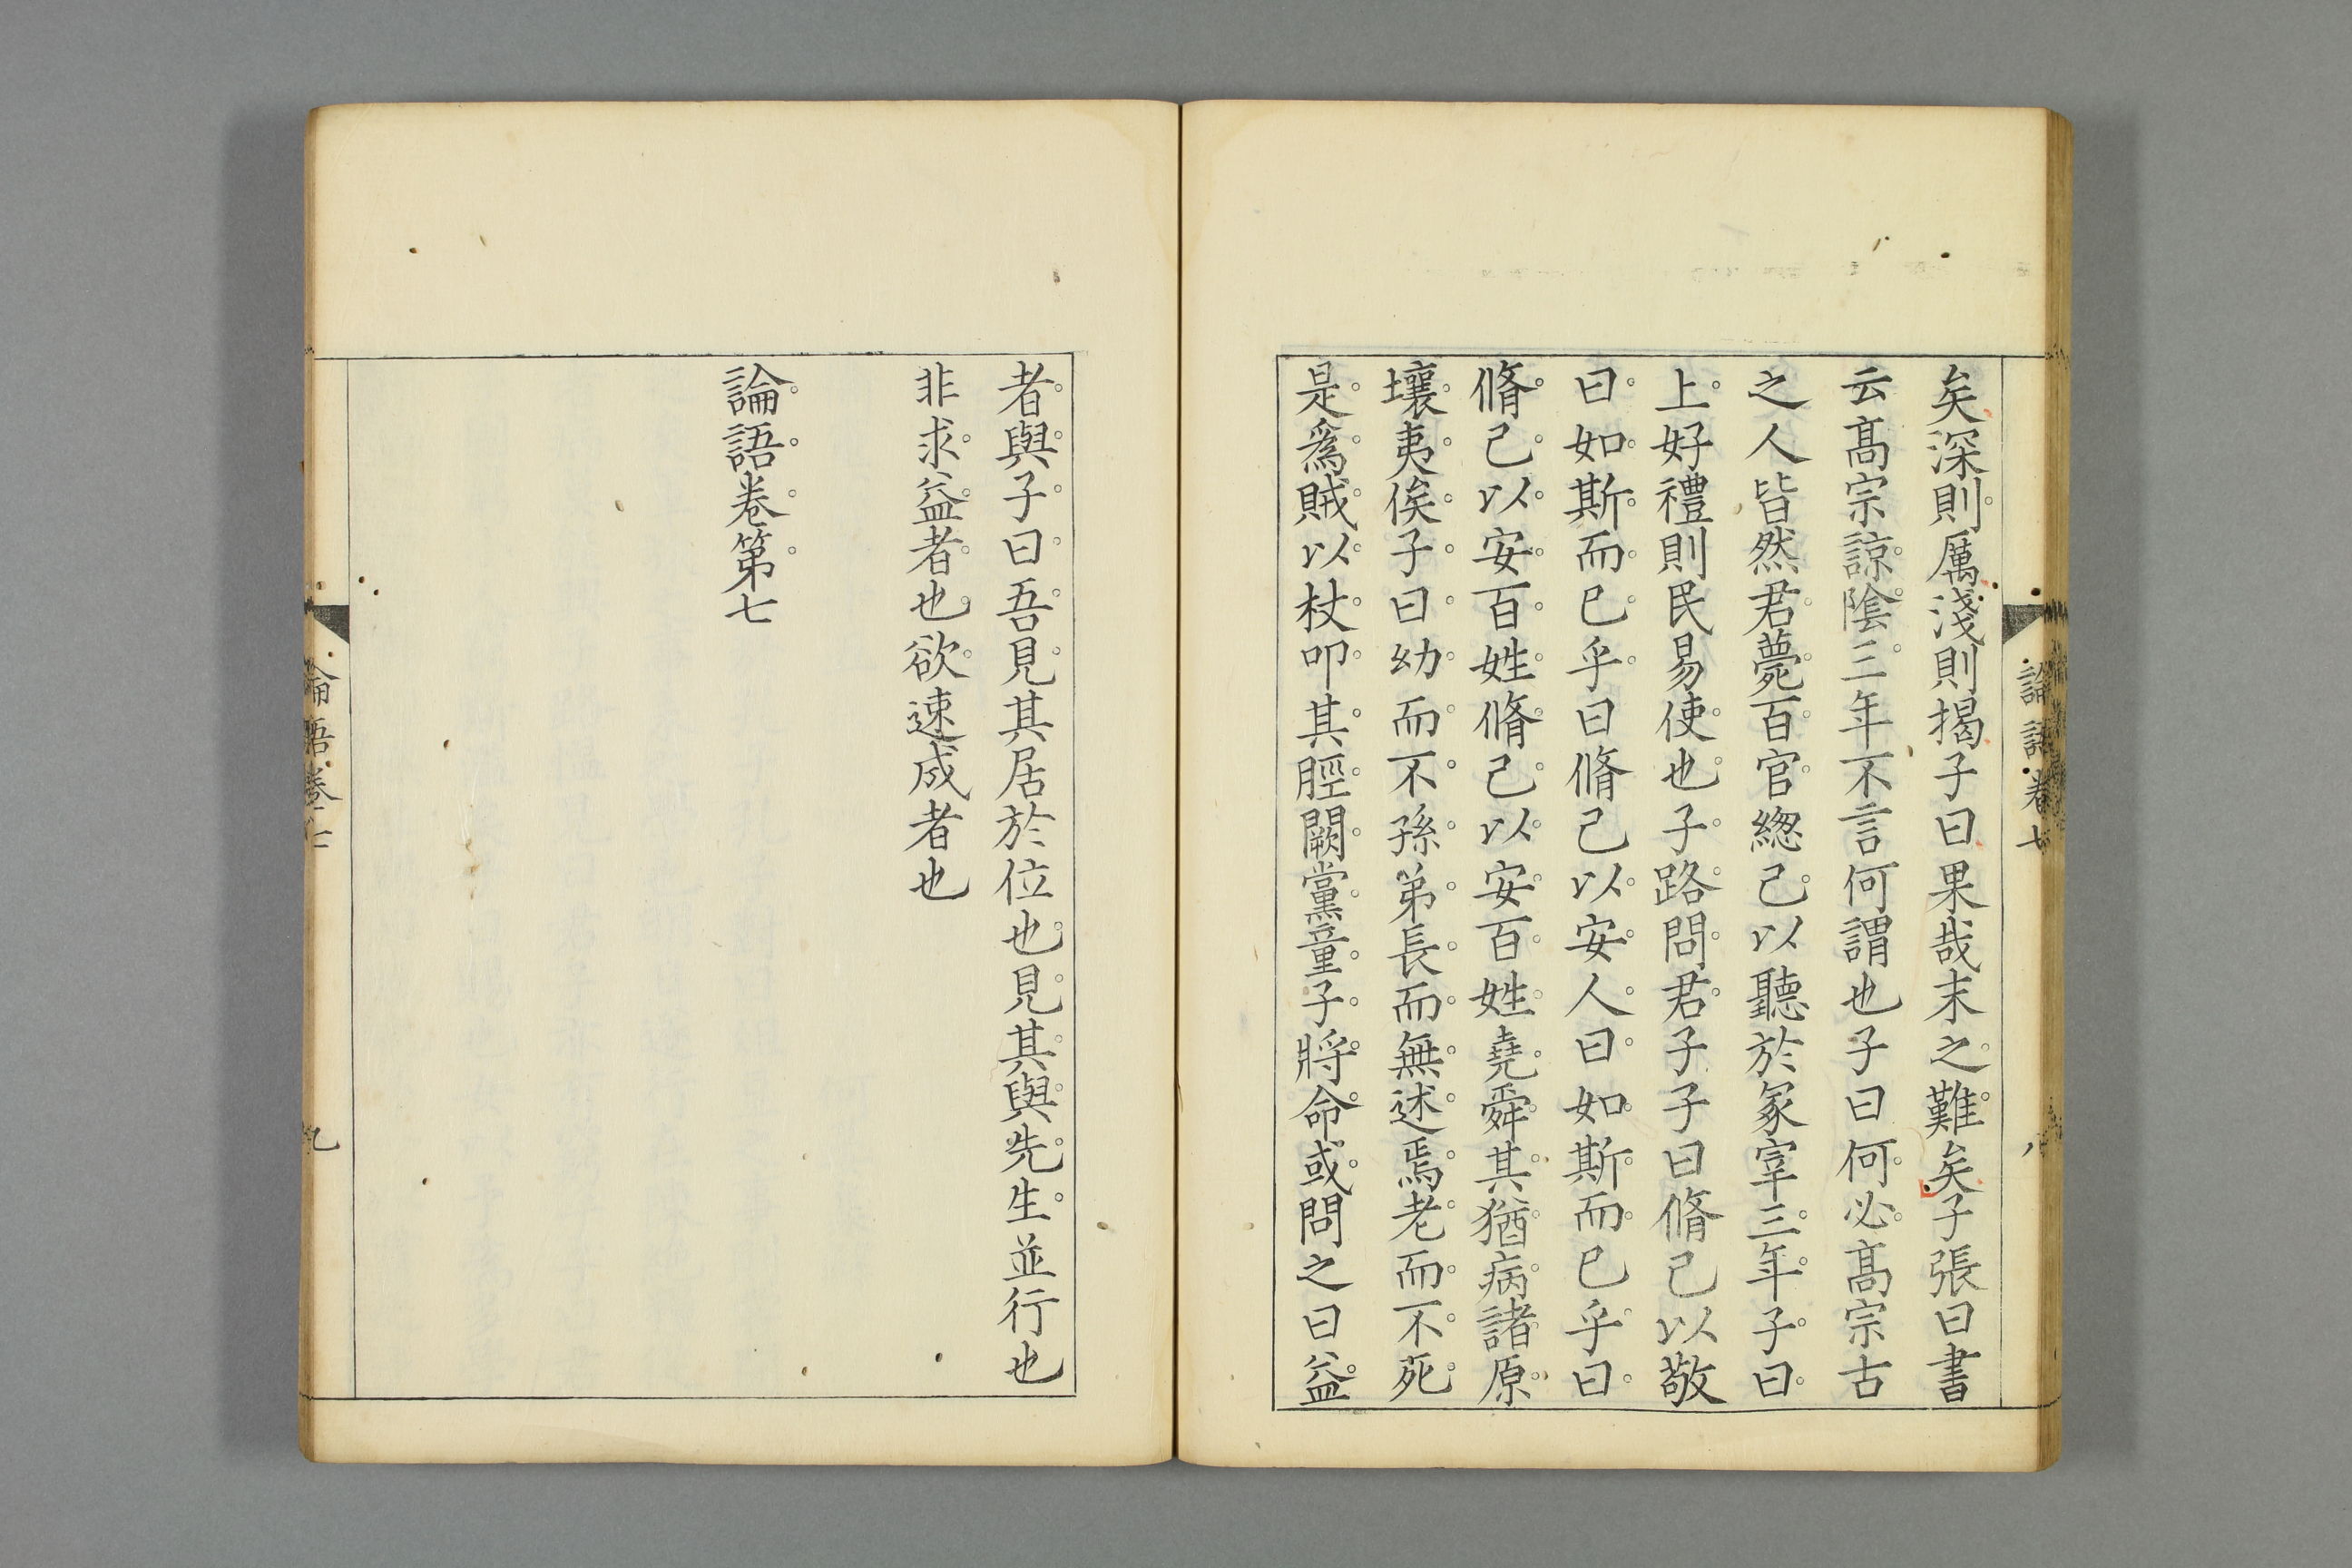 矣深則厲淺則揭子曰果哉末之難矣子張曰書
云髙宗諒隂三年不言何謂也子曰何必髙宗古
之人皆然君薨百官緫己以聽於冢宰三年子曰
上好禮則民易使也子路問君子子曰脩己以敬
曰如斯而已乎曰脩己以安人曰如斯而已乎曰
脩己以安百姓脩己以安百姓堯舜其猶病諸原
壤夷俟子曰幼而不孫弟長而無述焉老而不死
是爲賊以杖叩其脛闕黨童子將命或問之曰益
論語卷七
八
者與子曰吾見其居於位也見其與先生並行也
非求益者也欲速成者也
論語卷第七
論語卷七
九